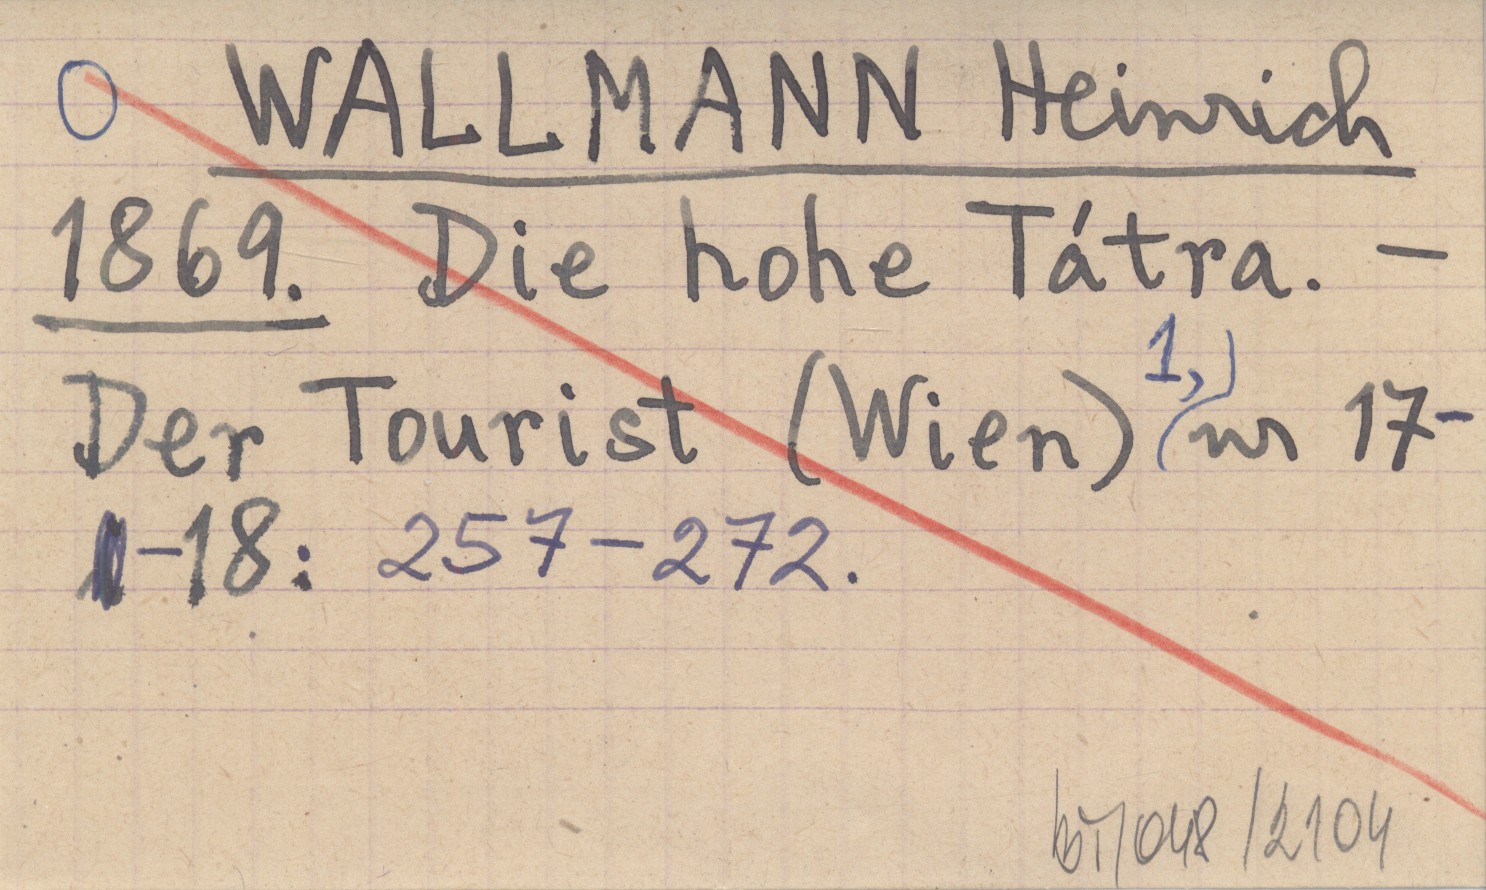 O WALLMANN Heinrich
1869. Die hohe Tátra. –
Der Tourist (Wien) 1, nr 17-
-18: 257-272.
/048/2104